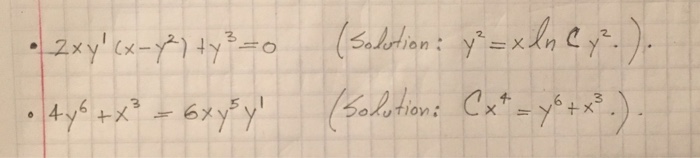 • 2xy' (x-y²) + y³ = 0 (Solution: y² = x ln C y².).
• 4y⁶ + x³ = 6xy⁵y' (Solution: Cx⁴ = y⁶ + x³.).